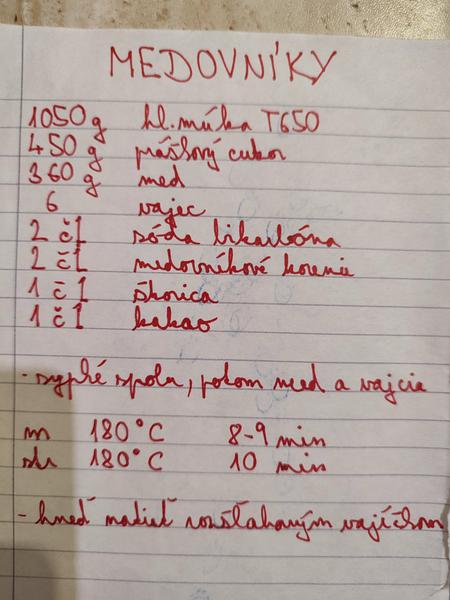 MEDOVNÍKY
1050 g hl. múka T650
450 g práškový cukor
360 g med
6 vajec
2 čl sóda bikarbóna
2 čl medovníkové korenie
1 čl škorica
1 čl kakao
- sypké spolu, potom med a vajcia
m 180°C 8-9 min
str 180°C 10 min
- hneď natrieť rozšľahaným vajíčkom